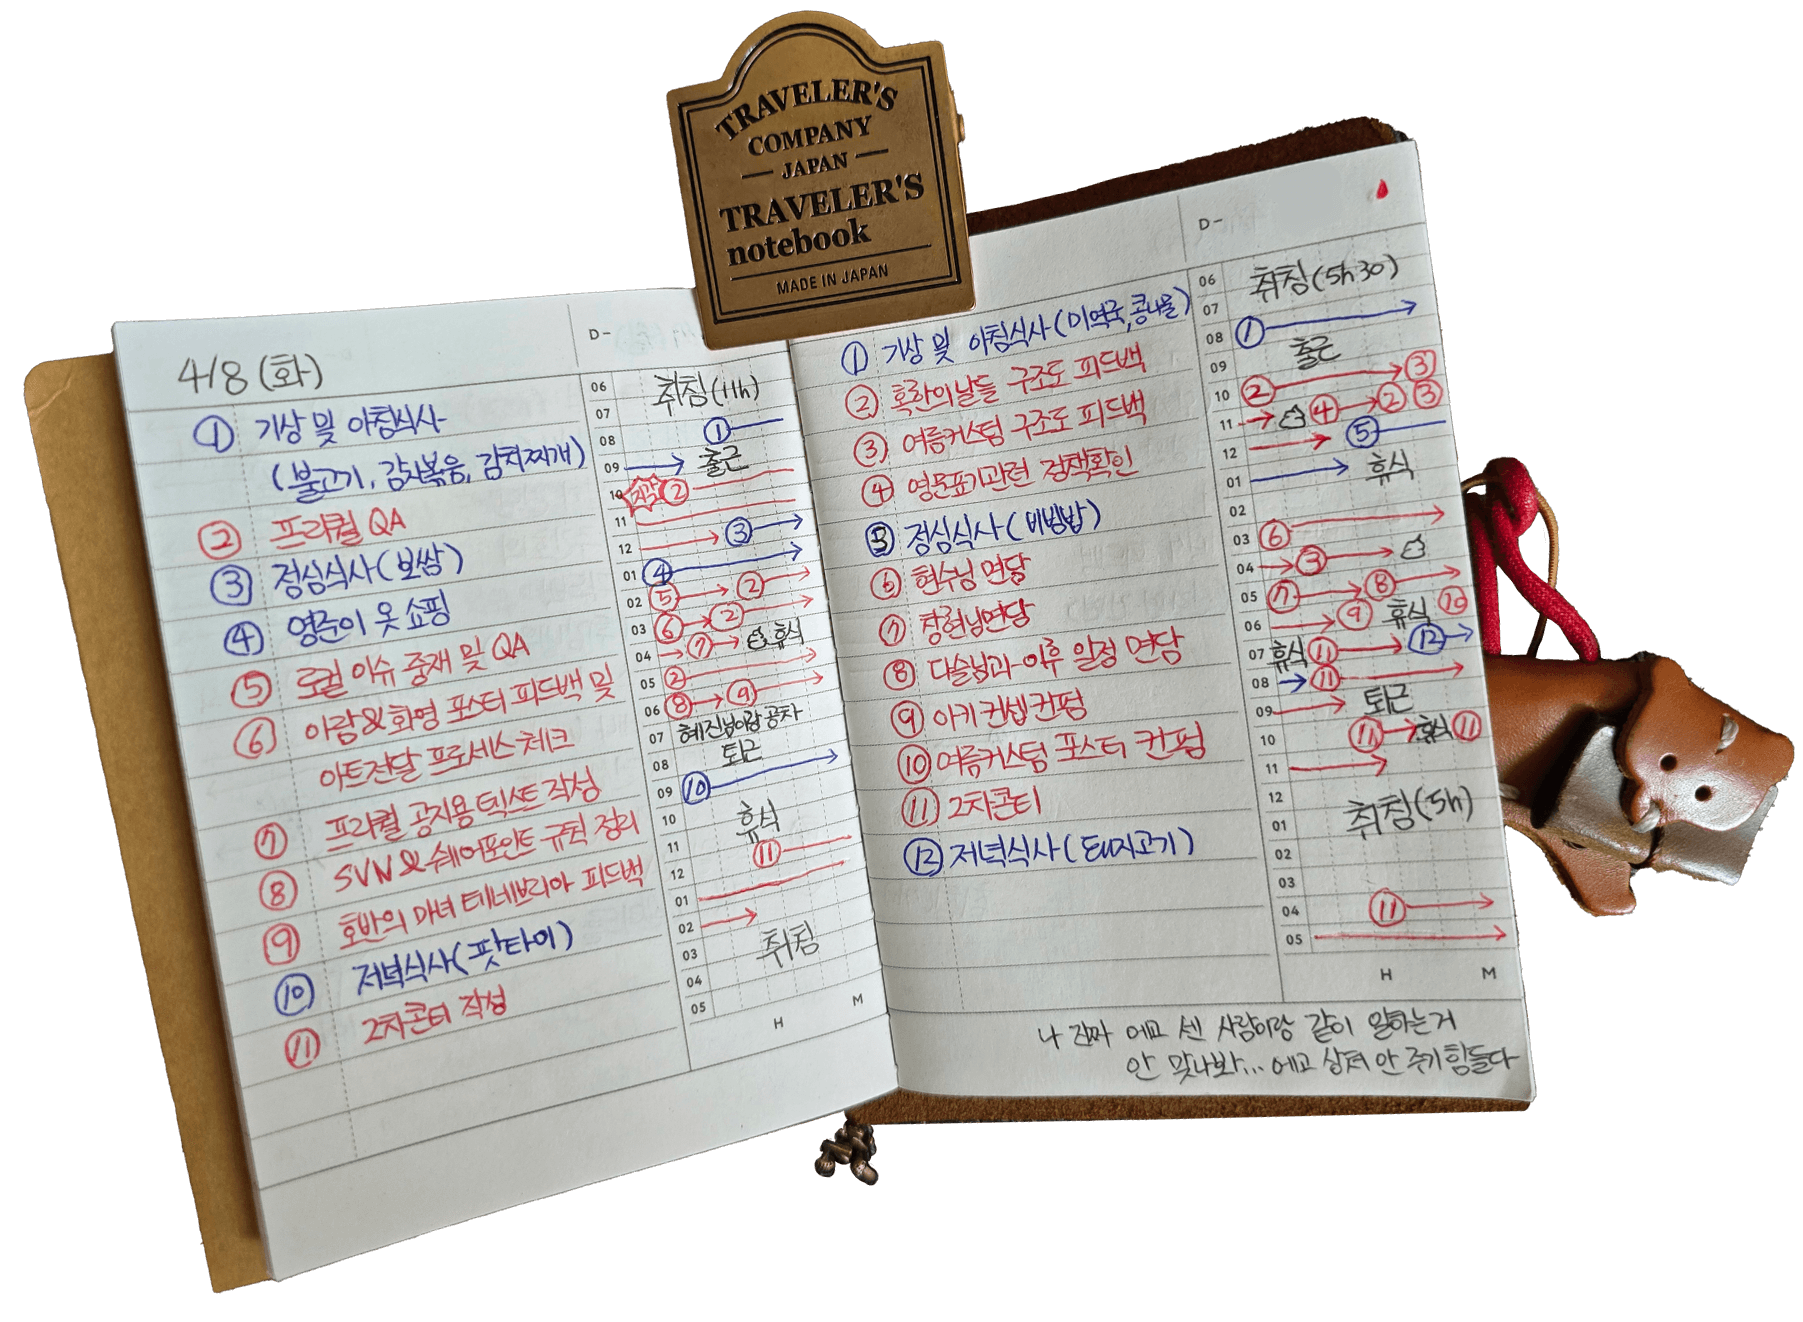 TRAVELER'S
COMPANY
JAPAN
TRAVELER'S
notebook
MADE IN JAPAN
4/8 (화)
D-
① 기상 및 아침식사
(불고기, 감자볶음, 김치찌개)
② 프리퀄 QA
③ 점심식사 (보쌈)
④ 영준이 옷 쇼핑
⑤ 로컬 이슈 중재 및 QA
⑥ 이람&화영 포스터 피드백 및
아트전달 프로세스 체크
⑦ 프리퀄 공지용 텍스트 작성
⑧ SVN & 쉐어포인트 규칙 정리
⑨ 호반의 마녀 테네브리아 피드백
⑩ 저녁식사 (팟타이)
⑪ 2차콘티 작성
06 취침 (11h)
07 ①
08 출근
09
10 지각 ②
11
12 ③
01 ④
02 ⑤ ②
03 ⑥ ②
04 ⑦ 휴식
05 ②
06 ⑧ ⑨
07 혜진님이랑 공차
08 퇴근
09 ⑩
10 휴식
11 ⑪
12
01
02
03 취침
04
05
H M
D-
① 기상 및 아침식사 (미역국, 콩나물)
② 혹한의날들 구조도 피드백
③ 여름커스텀 구조도 피드백
④ 영문표기관련 정책확인
⑤ 점심식사 (비빔밥)
⑥ 현수님 면담
⑦ 창현님면담
⑧ 다슬님과 이후 일정 면담
⑨ 아키 컨셉 컨펌
⑩ 여름커스텀 포스터 컨펌
⑪ 2차콘티
⑫ 저녁식사 (돼지고기)
06 취침 (5h30)
07
08 ①
09 출근
10 ② ③
11 ④ ② ③
12 ⑤
01 휴식
02
03 ⑥
04 ③
05 ⑦ ⑧
06 ⑨ 휴식 ⑩
07 휴식 ⑪ ⑫
08 ⑪
09 퇴근
10 ⑪ 휴식 ⑪
11
12
01 취침 (5h)
02
03
04 ⑪
05
H M
나 진짜 에고 센 사람이랑 같이 일하는거
안 맞나봐... 에고 상처 안 주기 힘들다